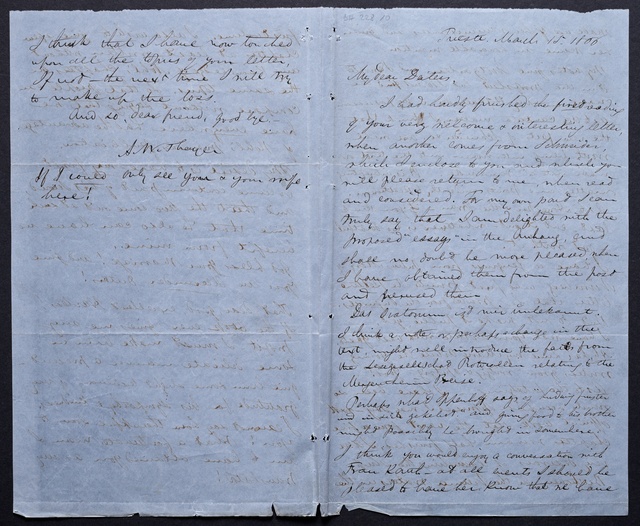 Trieste March 15. 1866
My dear Deiters,
I had hardly finished the first reading
of your very welcome & interesting letter,
when another comes from Schneider,
which I enclose to you and which you
will please return to me, when read
and considered. For my own part I can
truly say that I am delighted with the
proposed essays in the Anhang, and
shall no doubt be more pleased when
I have obtained them from the post
and perused them.
Das ist mir unbekannt.
I think a note, or perhaps a change in the
text, might well introduce the facts from
the Protocollen relating to the
Mergentheim Reise.
Perhaps what says of Ludwig
and and his brother
might possibly be brought in somewhere.
I think you would enjoy a conversation with
Frau at all events I should be
pleased to have her know that we have
I think that I have now touched
upon all the topics of your letter.
If not – the next time I will try
to make up the loss.
And so, dear friend, good bye
A. W. Thayer
If I could only see you & your wife
here!